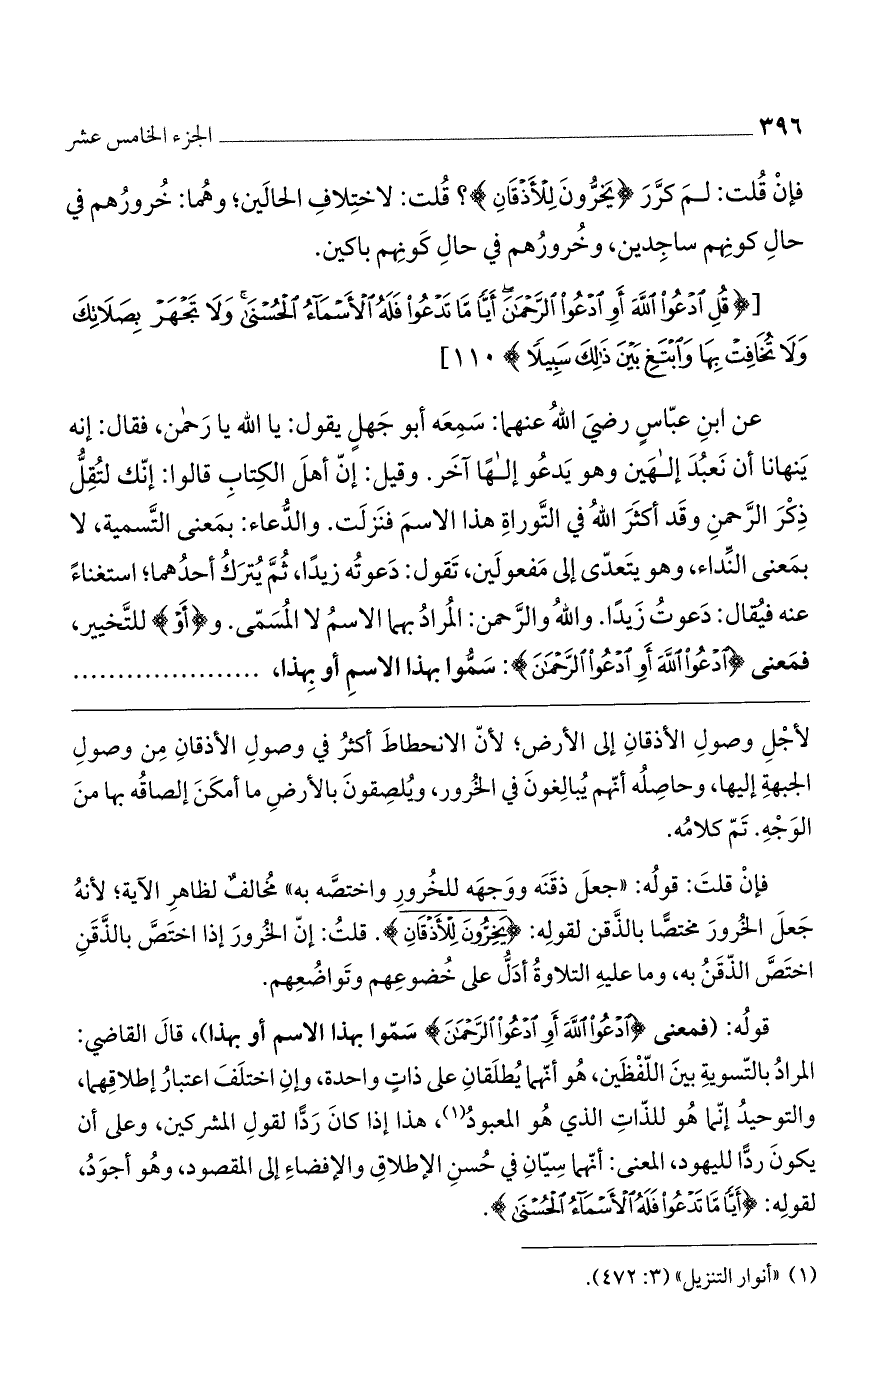 ٣٩٦ الجزء الخامس عشر
فإنْ قُلت: لـمَ كرَّرَ ﴿يَخِرُّونَ لِلْأَذْقَانِ﴾؟ قُلت: لاختِلافِ الحالَين؛ وهُما: خُرورُهم في
حالِ كونِهم ساجِدين، وخُرورُهم في حالِ كَونِهم باكين.
[﴿قُلِ ٱدْعُوا۟ ٱللَّهَ أَوِ ٱدْعُوا۟ ٱلرَّحْمَٰنَ ۖ أَيًّا مَّا تَدْعُوا۟ فَلَهُ ٱلْأَسْمَآءُ ٱلْحُسْنَىٰ ۚ وَلَا تَجْهَرْ بِصَلَاتِكَ
وَلَا تُخَافِتْ بِهَا وَٱبْتَغِ بَيْنَ ذَٰلِكَ سَبِيلًا﴾ ١١٠]
عن ابنِ عبّاسٍ رضيَ اللهُ عنهما: سَمِعَه أبو جَهلٍ يقول: يا الله يا رَحمٰن، فقال: إنه
يَنهانا أن نَعبُدَ إلـٰهَين وهو يَدعُو إلـٰهًا آخَر. وقيل: إنّ أهلَ الكِتابِ قالوا: إنّك لتُقِلُّ
ذِكْرَ الرَّحمنِ وقَد أكثَرَ اللهُ في التَّوراةِ هذا الاسمَ فنَزلَت. والدُّعاء: بمَعنى التَّسمية، لا
بمَعنى النِّداء، وهو يتَعدّى إلى مَفعولَين، تَقول: دَعوتُه زيدًا، ثُمَّ يُترَكُ أحدُهما؛ استغناءً
عنه فيُقال: دَعوتُ زَيدًا. واللهُ والرَّحمن: المُرادُ بهما الاسمُ لا المُسَمّى. و﴿أَوْ﴾ للتَّخيير،
فمَعنى ﴿ٱدْعُوا۟ ٱللَّهَ أَوِ ٱدْعُوا۟ ٱلرَّحْمَٰنَ﴾: سَمُّوا بهذا الاسمِ أو بِهذا، .....................
لأجْلِ وصولِ الأذقانِ إلى الأرض؛ لأنّ الانحطاطَ أكثرُ في وصولِ الأذقانِ مِن وصولِ
الجبهةِ إليها، وحاصِلُه أنّهم يُبالِغونَ في الخُرور، ويُلصِقونَ بالأرضِ ما أمكَنَ إلصاقُه بها منَ
الوَجْهِ. تَمّ كلامُه.
فإنْ قلتَ: قولُه: «جعلَ ذقَنَه ووَجهَه للخُرورِ واختصَّه به» مُخالفٌ لظاهرِ الآية؛ لأنهُ
جَعلَ الخُرورَ مختصًّا بالذَّقن لقولِه: ﴿يَخِرُّونَ لِلْأَذْقَانِ﴾. قلتُ: إنّ الخُرورَ إذا اختَصَّ بالذَّقَنِ
اختَصَّ الذّقَنُ به، وما عليهِ التلاوةُ أدَلُّ على خُضوعِهم وتَواضُعِهم.
قولُه: (فمعنى ﴿ٱدْعُوا۟ ٱللَّهَ أَوِ ٱدْعُوا۟ ٱلرَّحْمَٰنَ﴾ سَمّوا بهذا الاسم أو بهذا)، قالَ القاضي:
المرادُ بالتّسويةِ بينَ اللّفْظَين، هُو أنّهما يُطلَقانِ على ذاتٍ واحدة، وإنِ اختلَفَ اعتبارُ إطلاقِهما،
والتوحيدُ إنّما هُو للذّاتِ الذي هُو المعبودُ(١)، هذا إذا كانَ رَدًّا لقولِ المشركين، وعلى أن
يكونَ ردًّا لليهود، المعنى: أنّهما سِيّانِ في حُسنِ الإطلاقِ والإفضاءِ إلى المقصود، وهُو أجوَدُ،
لقولِه: ﴿أَيًّا مَّا تَدْعُوا۟ فَلَهُ ٱلْأَسْمَآءُ ٱلْحُسْنَىٰ﴾.
(١) «أنوار التنزيل» (٣: ٤٧٢).